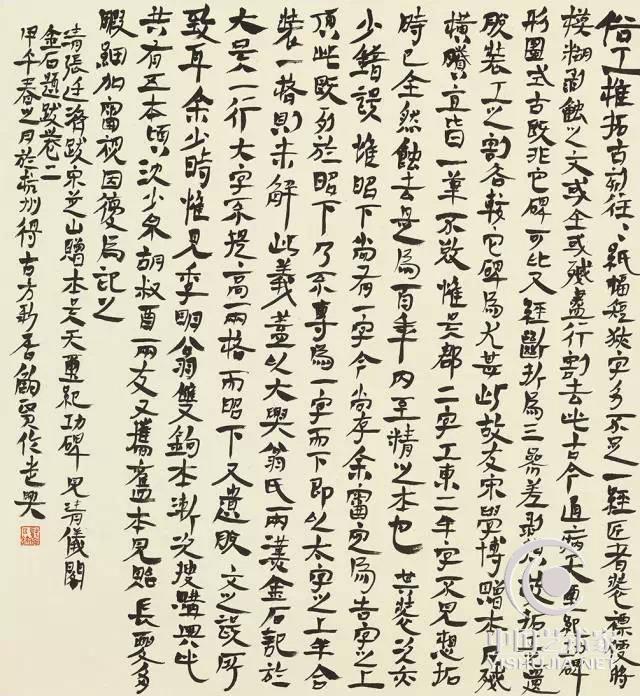 俗工椎拓古刻往々紙幅短狹字多不足一經匠者裝褾便將
模糊剥蝕之文或全或殘盡行割去此古今通病天
形圜式古既非它碑可比又經斷折爲三
敗裝工之割各較它碑爲尤甚此故友宋學博贈本反殘
橫賸直皆一筆不敗惟吴都二字工東二年字不見想拓
時已全然蝕去是爲百年內至精之本也其裝次亦
少錯誤惟昭下尚有一字今尚存余審定爲吉字之上
頂此段列於昭下了不專爲一字而下即以太字之上半合
裝一格則未解此義蓋以大興翁氏兩漢金石記於
大吴一行大字不提高一兩格而昭下又遺敗文之誤所
致耳余少時惟見李明翁雙鉤本漸次搜購與此
共有五本頃次少泉胡叔酉兩友又攜舊本見貽長夏多
暇細加審視因復爲記之
清張廷濟跋宋芝山贈本吴天璽紀功碑見清儀閣
金石題跋卷二
甲午春之月於杭州得古方新香館賢作老興
中国艺术家
YISHUJIA.NET